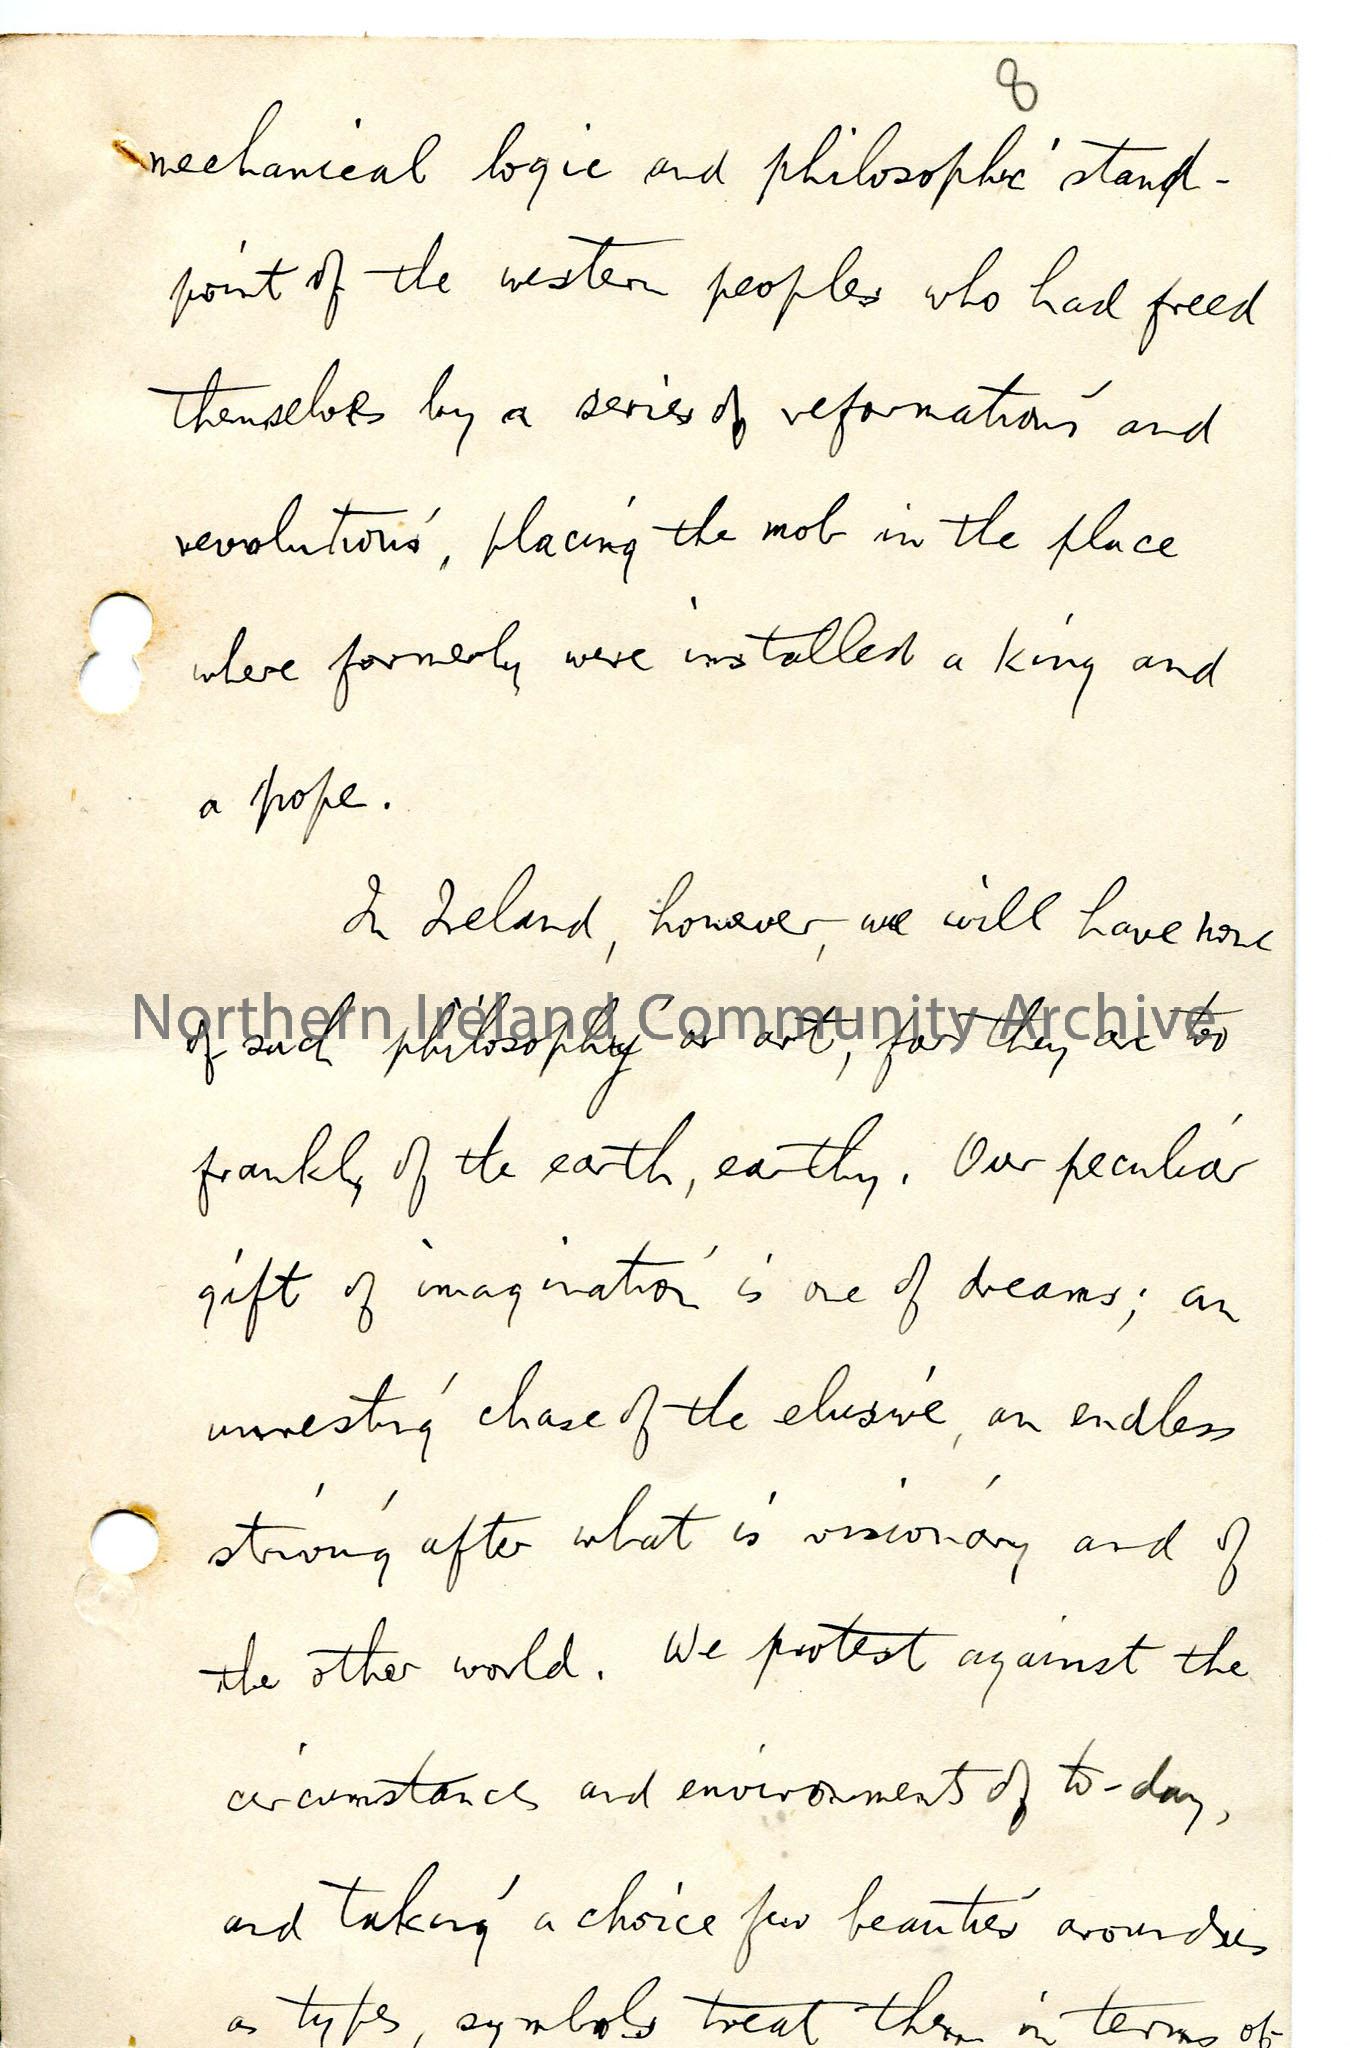 8
mechanical logic and philosophic stand-
point of the western peoples who had freed
themselves by a series of reformations and
revolutions, placing the mob in the place
where formerly were installed a king and
a pope.
In Ireland, however, we will have none
Northern Ireland Community Archive
of such philosophy or art, for they are too
frankly of the earth, earthy. Our peculiar
gift of imagination is one of dreams; an
unresting chase of the elusive, an endless
striving after what is visionary and of
the other world. We protest against the
circumstances and environments of to-day,
and taking a choice few beauties around us
as types, symbols treat them in terms of